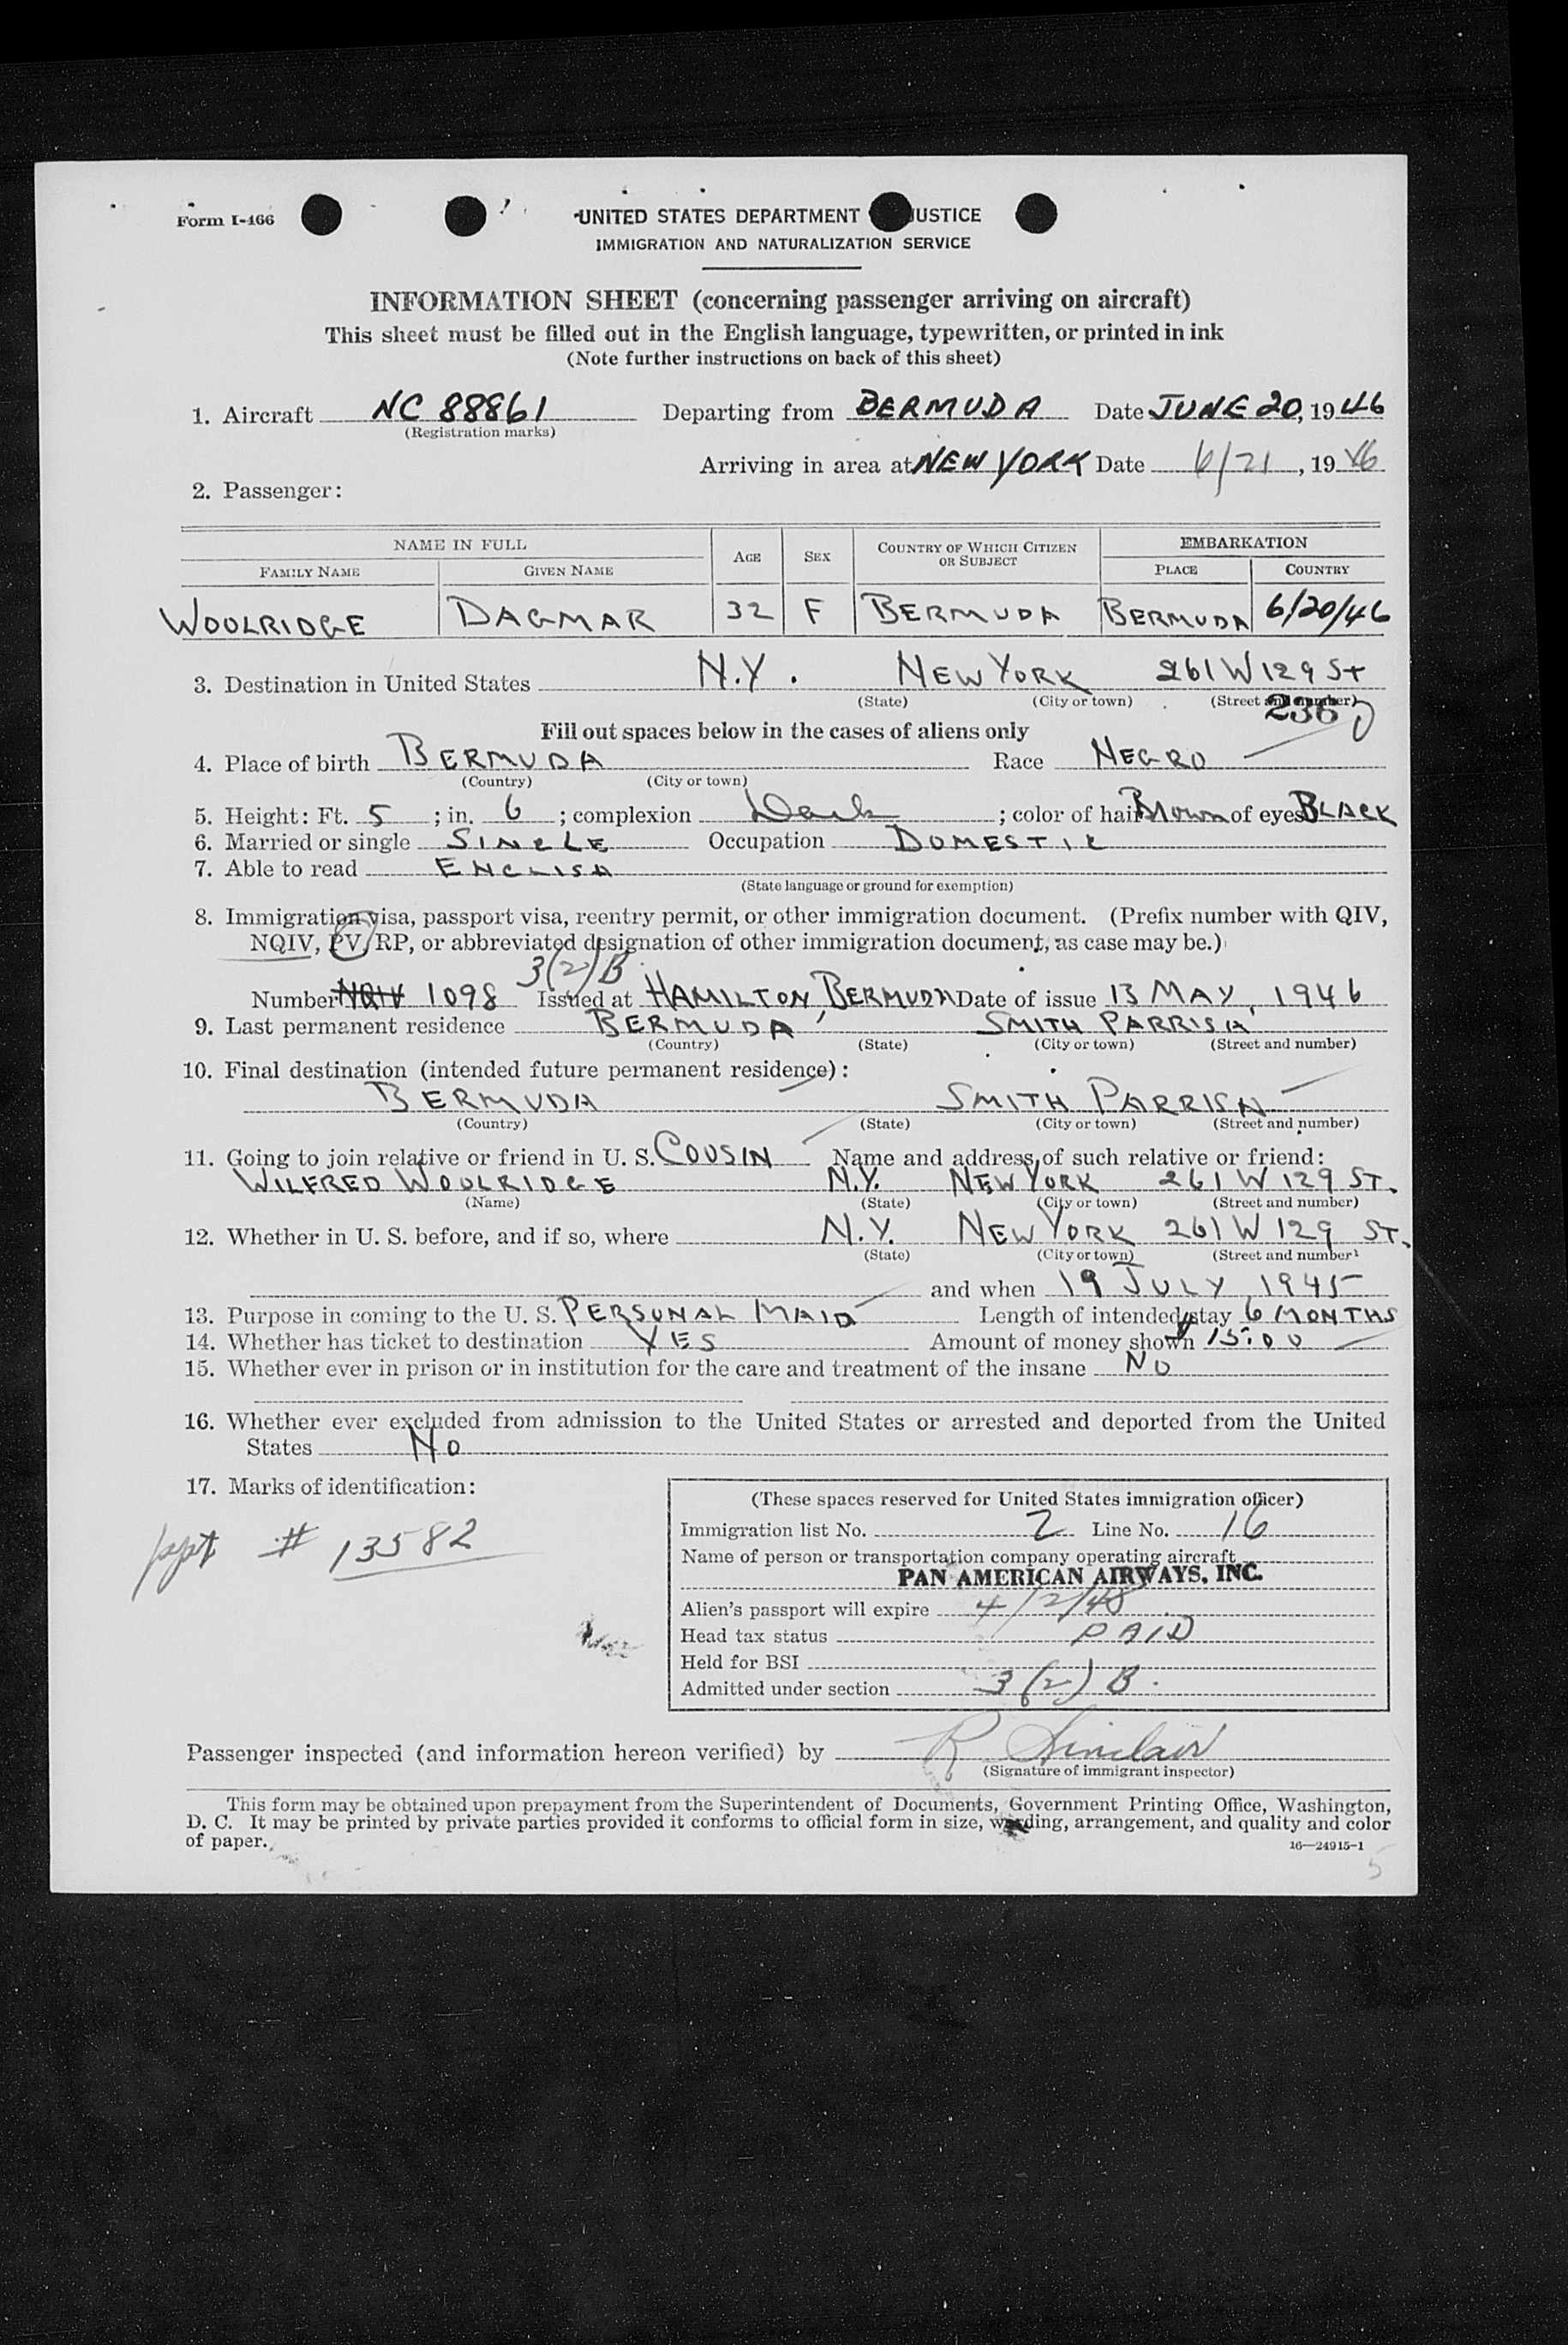 Form I-466
UNITED STATES DEPARTMENT USTICE
IMMIGRATION AND NATURALIZATION SERVICE
INFORMATION SHEET (concerning passenger arriving on aircraft)
This sheet must be filled out in the English language, typewritten, or printed in ink
(Note further instructions on back of this sheet)
1. Aircraft NC 88861 Departing from BERMUDA Date JUNE 20, 1946
(Registration marks)
Arriving in area at NEW YORK Date 6/21, 1946
2. Passenger:
NAME IN FULL AGE SEX COUNTRY OF WHICH CITIZEN OR SUBJECT EMBARKATION
FAMILY NAME GIVEN NAME PLACE COUNTRY
WOOLRIDGE DAGMAR 32 F BERMUDA BERMUDA 6/20/46
3. Destination in United States N.Y. NEW YORK 261 W 129 ST
(State) (City or town) (Street and number)
236
Fill out spaces below in the cases of aliens only
4. Place of birth BERMUDA Race NEGRO
(Country) (City or town)
5. Height: Ft. 5; in. 6; complexion Dark; color of hair Brown of eyes BLACK
6. Married or single SINGLE Occupation DOMESTIC
7. Able to read ENGLISH
(State language or ground for exemption)
8. Immigration visa, passport visa, reentry permit, or other immigration document. (Prefix number with QIV,
NQIV, PV, RP, or abbreviated designation of other immigration document, as case may be.)
3(2)B
Number NQIV 1098 Issued at HAMILTON, BERMUDA Date of issue 13 MAY, 1946
9. Last permanent residence BERMUDA SMITH PARRISH
(Country) (State) (City or town) (Street and number)
10. Final destination (intended future permanent residence):
BERMUDA SMITH PARRISH
(Country) (State) (City or town) (Street and number)
11. Going to join relative or friend in U. S. COUSIN Name and address of such relative or friend:
WILFRED WOOLRIDGE N.Y. NEW YORK 261 W 129 ST.
(Name) (State) (City or town) (Street and number)
12. Whether in U. S. before, and if so, where N.Y. NEW YORK 261 W 129 ST.
(State) (City or town) (Street and number)
and when 19 JULY, 1945
13. Purpose in coming to the U. S. PERSONAL MAID Length of intended stay 6 MONTHS
14. Whether has ticket to destination YES Amount of money shown 15.00
15. Whether ever in prison or in institution for the care and treatment of the insane NO
16. Whether ever excluded from admission to the United States or arrested and deported from the United
States NO
17. Marks of identification:
ppt # 13582
(These spaces reserved for United States immigration officer)
Immigration list No. 2 Line No. 16
Name of person or transportation company operating aircraft
PAN AMERICAN AIRWAYS, INC.
Alien's passport will expire 4/2/48
Head tax status PAID
Held for BSI
Admitted under section 3(2)B.
Passenger inspected (and information hereon verified) by R Sinclair
(Signature of immigrant inspector)
This form may be obtained upon prepayment from the Superintendent of Documents, Government Printing Office, Washington,
D. C. It may be printed by private parties provided it conforms to official form in size, wording, arrangement, and quality and color
of paper.
16—24915-1
5